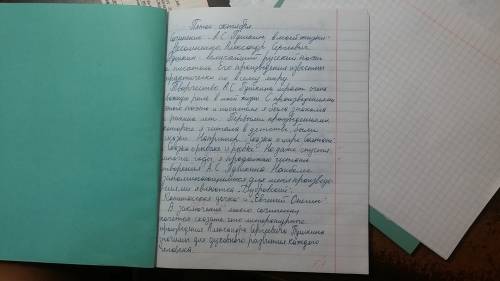 Пятое октября.
Сочинение: "А.С. Пушкин в моей жизни".
Несомненно Александр Сергеевич
Пушкин - величайший русский поэт
и писатель. Его произведения известны
практически по всему миру.
Творчество А.С. Пушкина играет очень
важную роль в моей жизни. С произведениями
этого поэта и писателя я была знакома
с ранних лет. Первыми произведениями,
которые я читала в детстве, были
сказки. Например, "Сказка о царе Салтане",
"Сказка о рыбаке и рыбке". Но даже спустя
многие годы, я продолжаю читать
творения А.С. Пушкина. Наиболее
запоминающимися для меня произведе-
ниями являются "Дубровский",
"Капитанская дочка" и "Евгений Онегин".
В заключение моего сочинения
хочется сказать, что литературные
произведения Александра Сергеевича Пушкина
значимы для духовного развития каждого
человека.